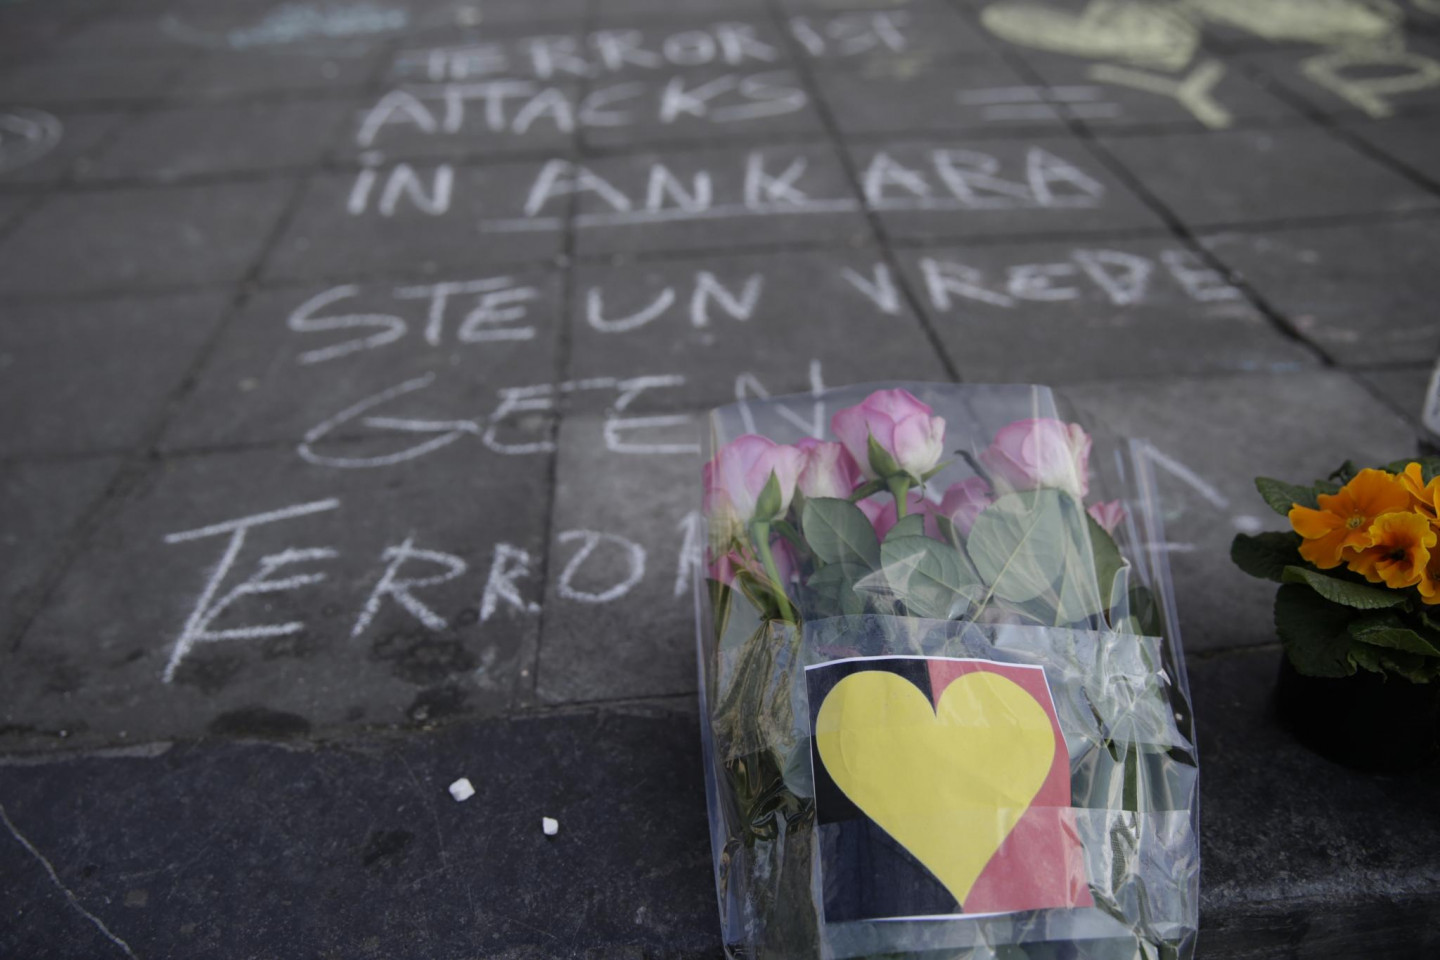 TERRORIST
ATTACKS = YP
iN ANKARA
STEUN VREDE
GEEN
TERROR